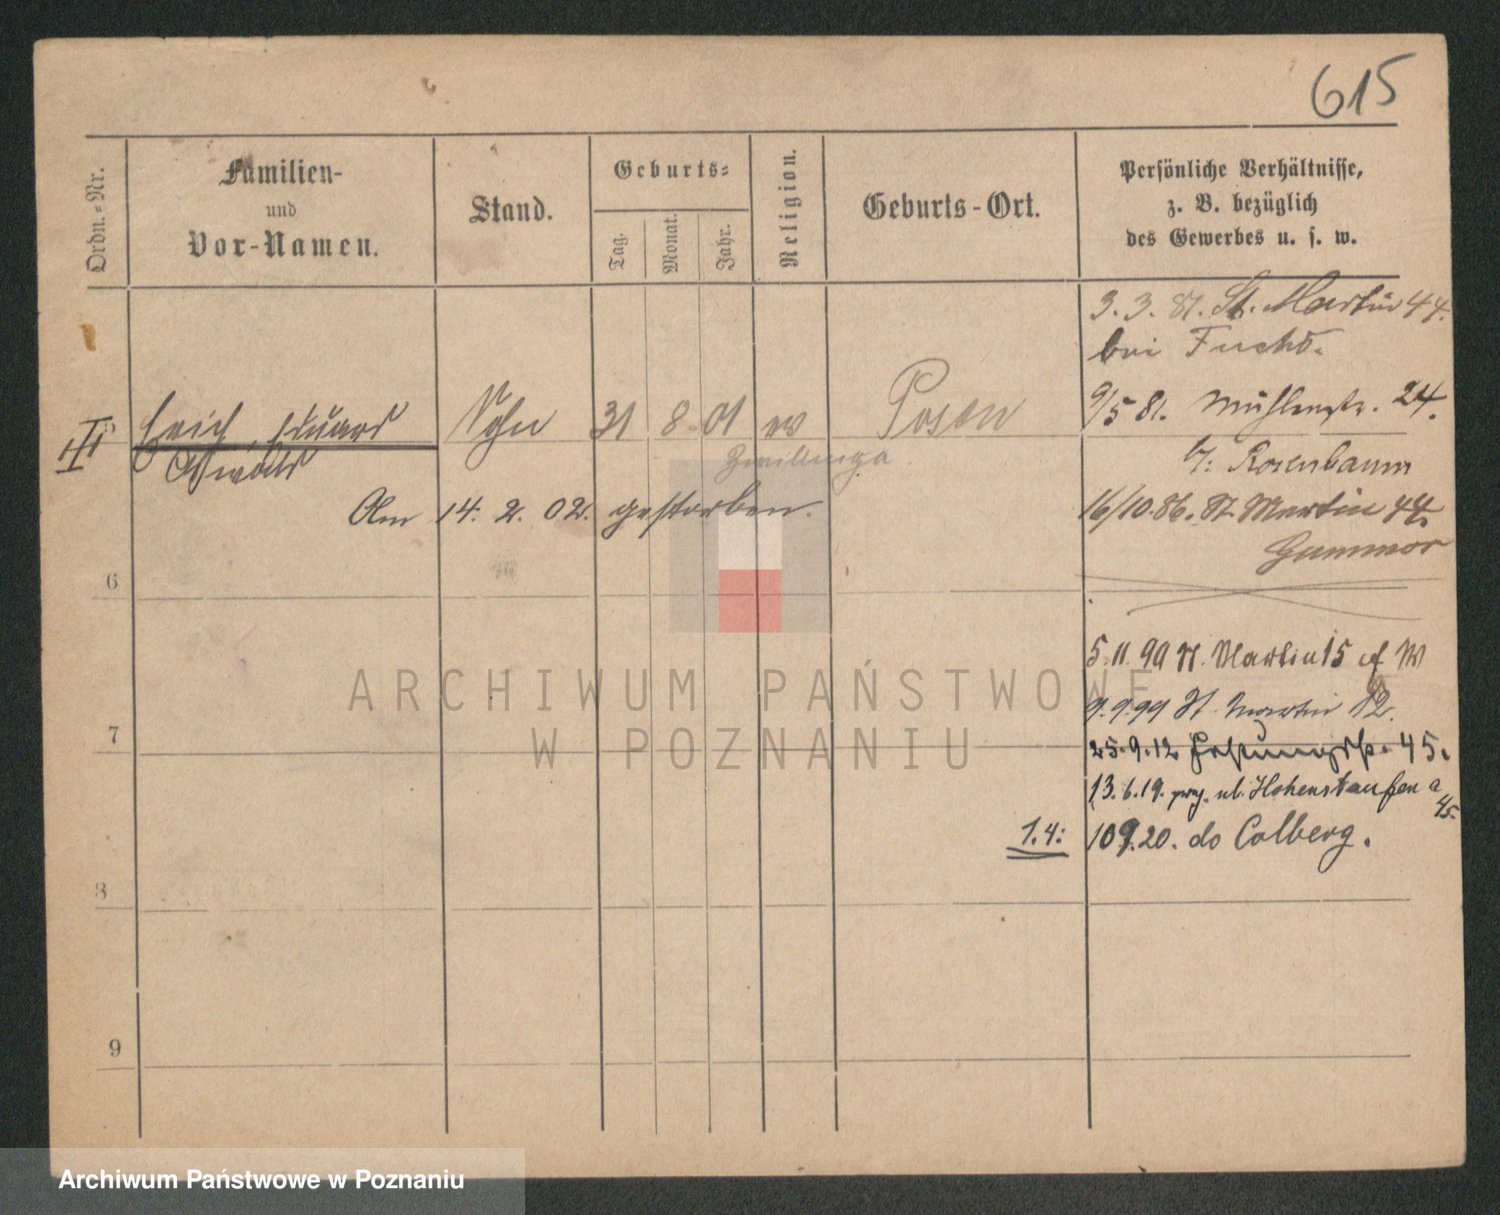 615
Ordn.-Nr.
Familien-
und
Vor-Namen.
Stand.
Geburts-
Tag.
Monat.
Jahr.
Religion.
Geburts-Ort.
Persönliche Verhältnisse,
z. B. bezüglich
des Gewerbes u. s. w.
3. 3. 81. St. Martin 44.
bei Fuchs.
Erich Eduard Sohn 31 8 01 Posen
Oswald
Zwillinge
Am 14. 2. 02. gestorben.
9/5 81. Mühlenstr. 24.
b/: Rosenbaum
16/10. 86. St Martin 44.
6
5. 11. 90 St. Martin 15
9. 9. 99 St. Martin 12.
25. 9. 12 45.
13. 6. 19. ul. Hohenstaufen a
45.
1.4: 10 9. 20. do Colberg.
7
8
9
ARCHIWUM PAŃSTWOWE
W POZNANIU
Archiwum Państwowe w Poznaniu